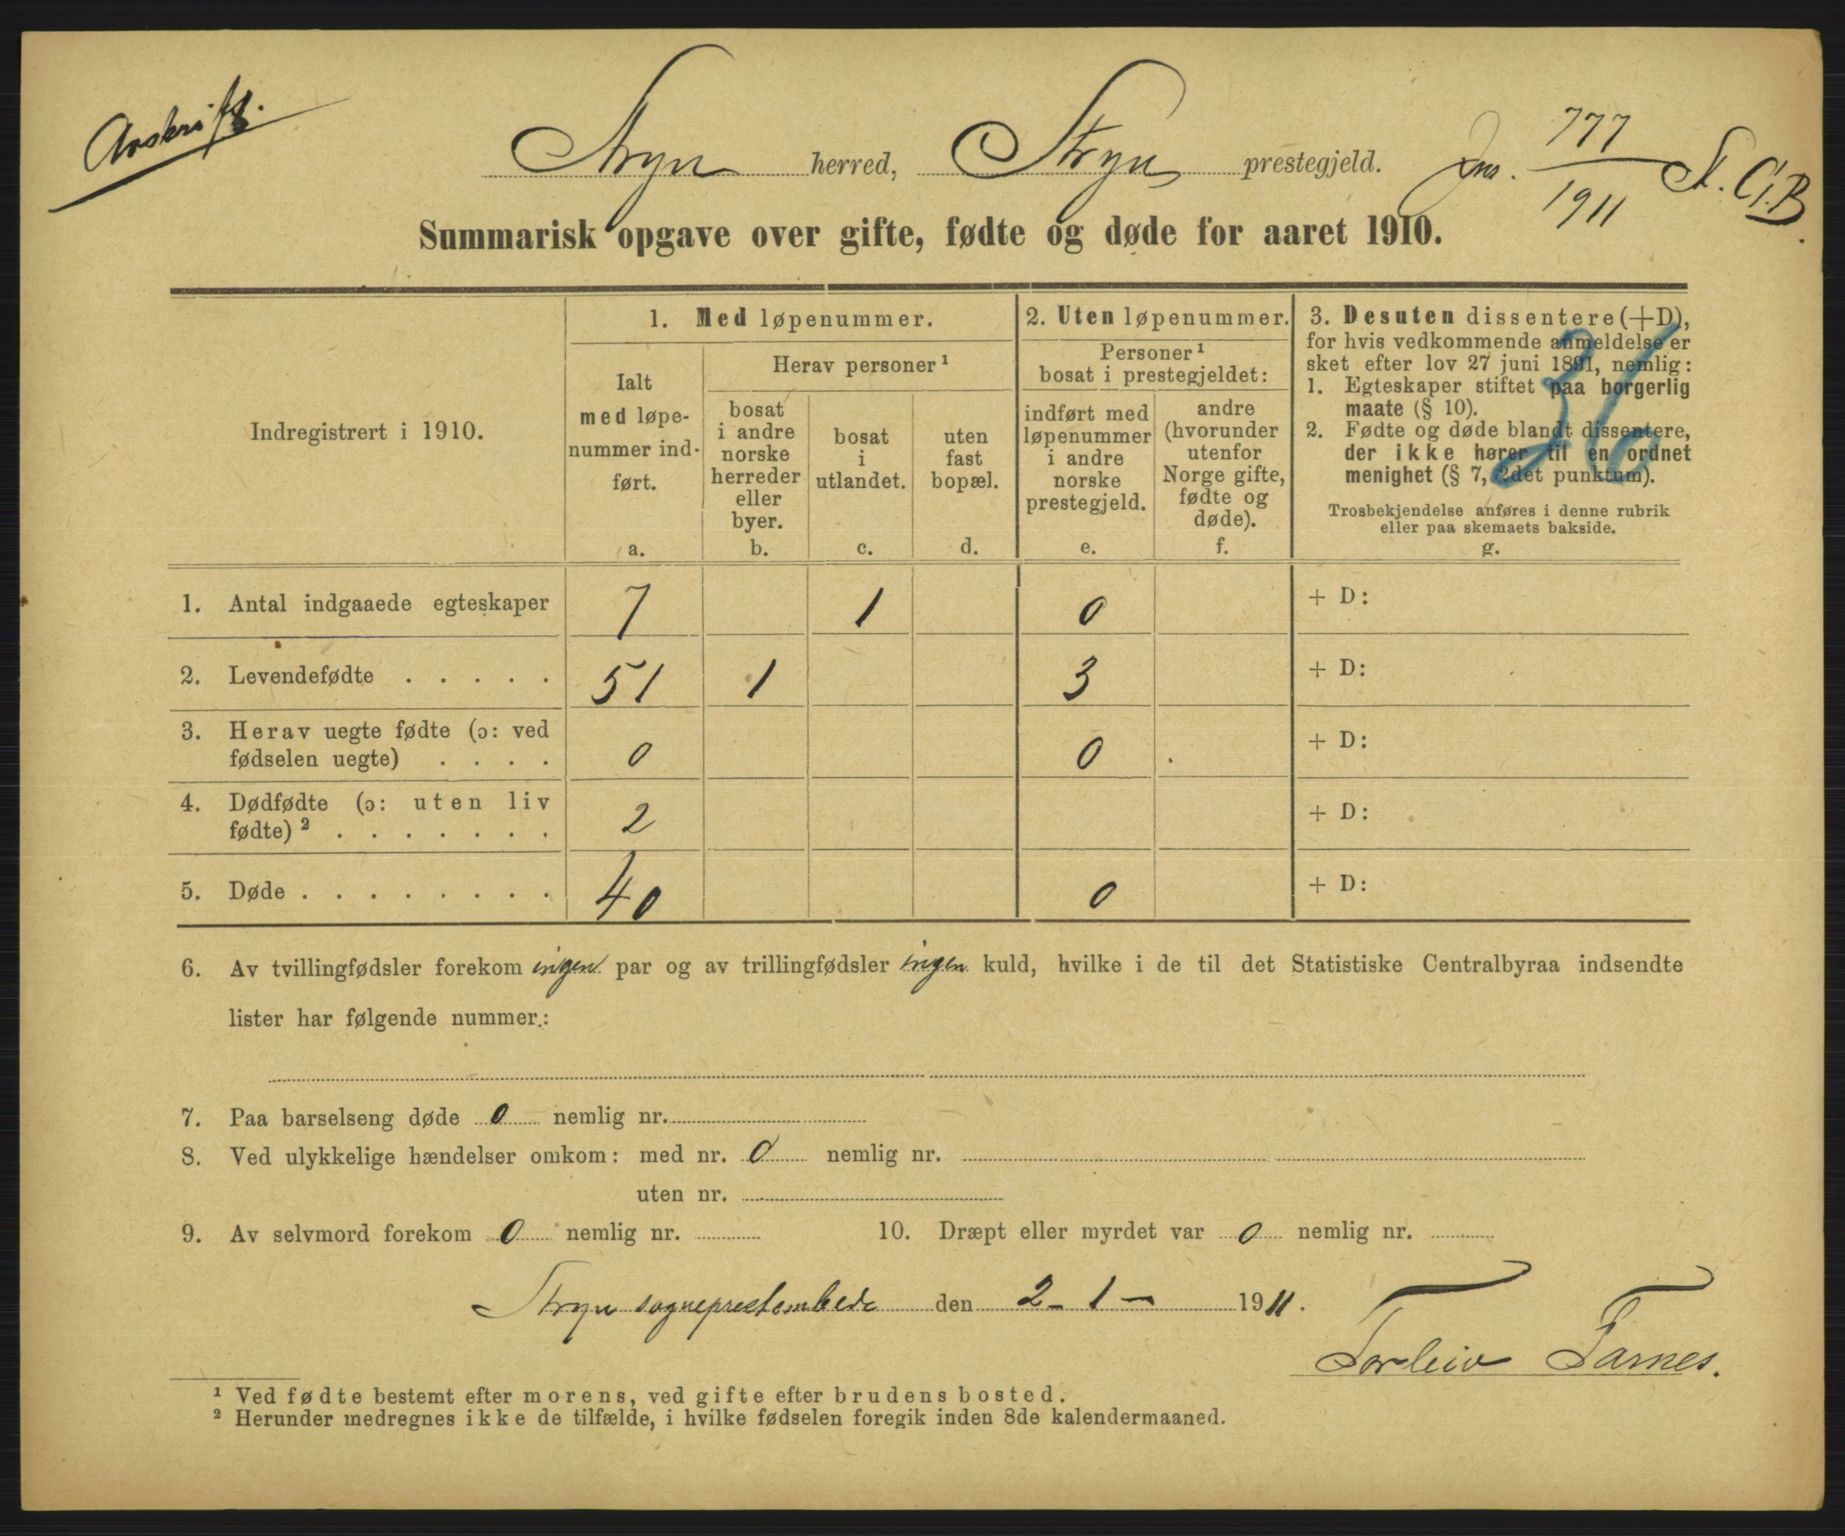 Avskrift.
Stryn herred, Stryn prestegjeld. Jns. 777/1911 St. C.B.
Summarisk opgave over gifte, fødte og døde for aaret 1910.
Indregistrert i 1910.
1. Med løpenummer.
Ialt
med løpe-
nummer ind-
ført.
a.
Herav personer ¹
bosat
i andre
norske
herreder
eller
byer.
b.
bosat
i
utlandet.
c.
uten
fast
bopæl.
d.
2. Uten løpenummer.
Personer ¹
bosat i prestegjeldet:
indført med
løpenummer
i andre
norske
prestegjeld.
e.
andre
(hvorunder
utenfor
Norge gifte,
fødte og
døde).
f.
3. Desuten dissentere (+D),
for hvis vedkommende anmeldelse er
sket efter lov 27 juni 1891, nemlig:
1. Egteskaper stiftet paa borgerlig
maate (§ 10).
2. Fødte og døde blandt dissentere,
der ikke hører til en ordnet
menighet (§ 7, 2det punktum).
Trosbekjendelse anføres i denne rubrik
eller paa skemaets bakside.
g.
1. Antal indgaaede egteskaper 7 1 0 + D:
2. Levendefødte . . . . . 51 1 3 + D:
3. Herav uegte fødte (ɔ: ved
fødselen uegte) . . . . 0 0 + D:
4. Dødfødte (ɔ: uten liv
fødte) ² . . . . . . . 2 + D:
5. Døde . . . . . . . . 40 0 + D:
6. Av tvillingfødsler forekom ingen par og av trillingfødsler ingen kuld, hvilke i de til det Statistiske Centralbyraa indsendte
lister har følgende nummer.:
7. Paa barselseng døde 0 nemlig nr.
8. Ved ulykkelige hændelser omkom: med nr. 0 nemlig nr.
uten nr.
9. Av selvmord forekom 0 nemlig nr. 10. Dræpt eller myrdet var 0 nemlig nr.
Stryn sogneprestembede den 2 - 1 - 1911.
Torleiv Farnes.
¹ Ved fødte bestemt efter morens, ved gifte efter brudens bosted.
² Herunder medregnes ikke de tilfælde, i hvilke fødselen foregik inden 8de kalendermaaned.